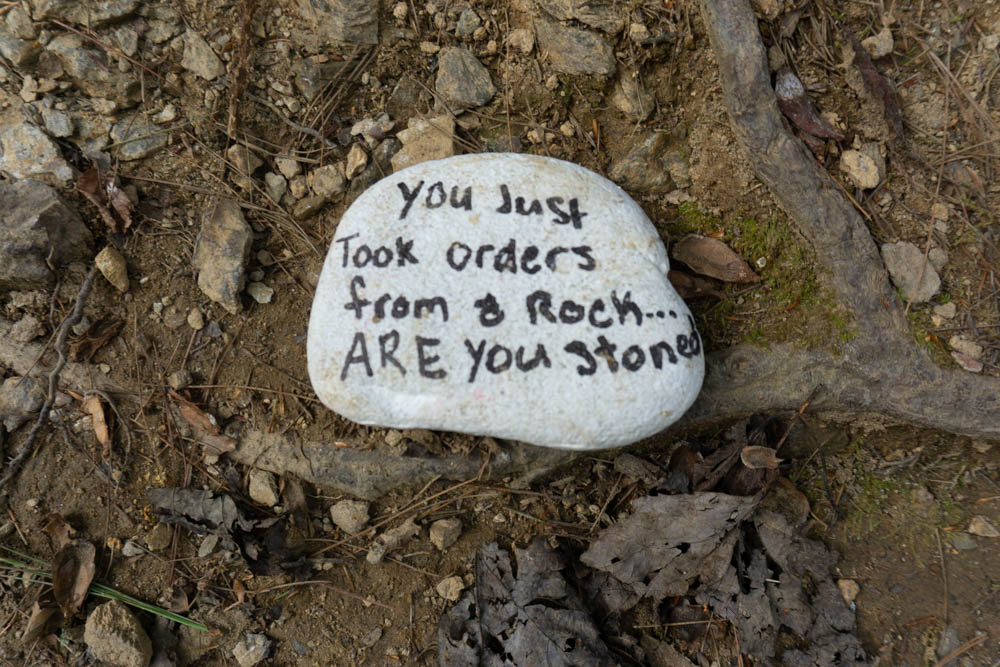 You Just
Took orders
from a Rock...
ARE You stoned